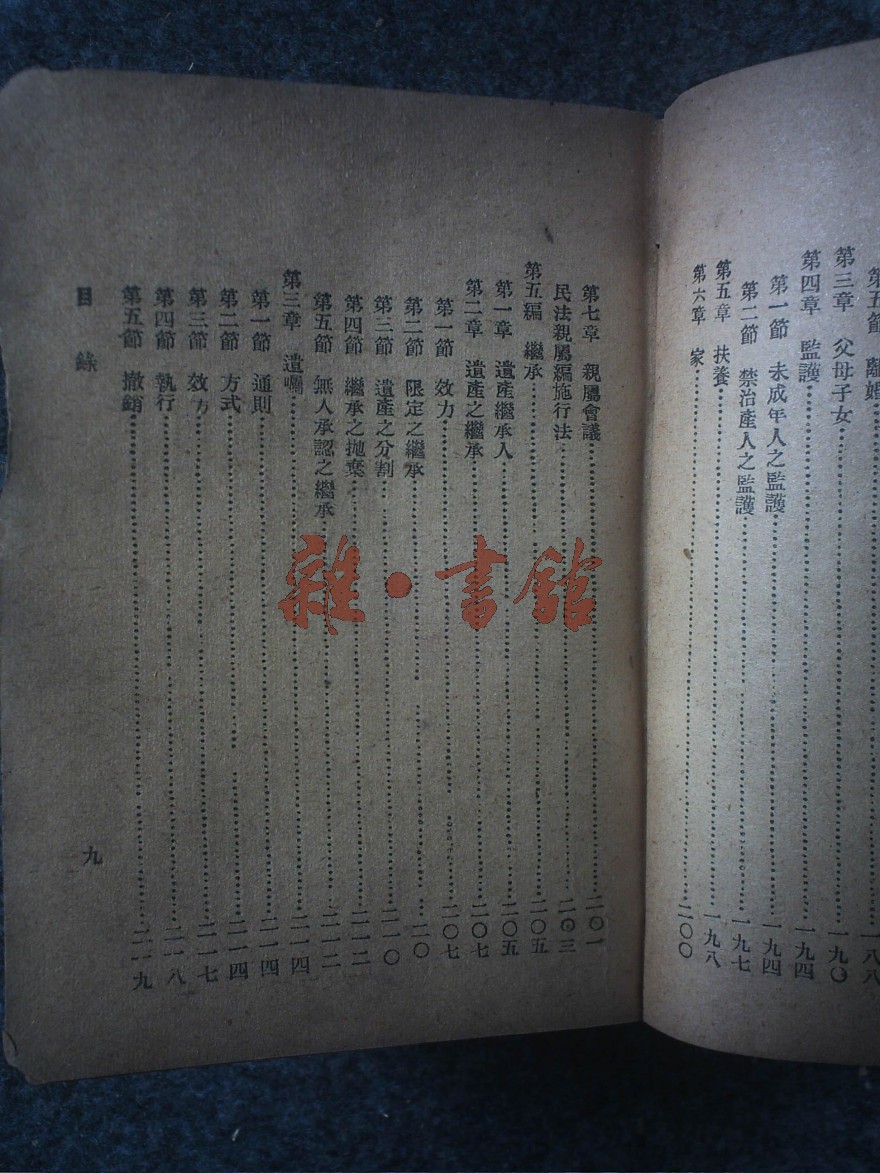 第五節 離婚……一八八
第三章 父母子女……一九〇
第四章 監護……一九四
第一節 未成年人之監護……一九四
第二節 禁治產人之監護……一九七
第五章 扶養……一九八
第六章 家……二〇〇
第七章 親屬會議……二〇一
民法親屬編施行法……二〇三
第五編 繼承……二〇五
第一章 遺產繼承人……二〇五
第二章 遺產之繼承……二〇七
第一節 效力……二〇七
第二節 限定之繼承……二〇
第三節 遺產之分割……二一〇
第四節 繼承之拋棄……二一二
第五節 無人承認之繼承……二一二
第三章 遺囑……二一四
第一節 通則……二一四
第二節 方式……二一四
第三節 效力……二一七
第四節 執行……二一八
第五節 撤銷……二一九
目錄
九
雜·書館